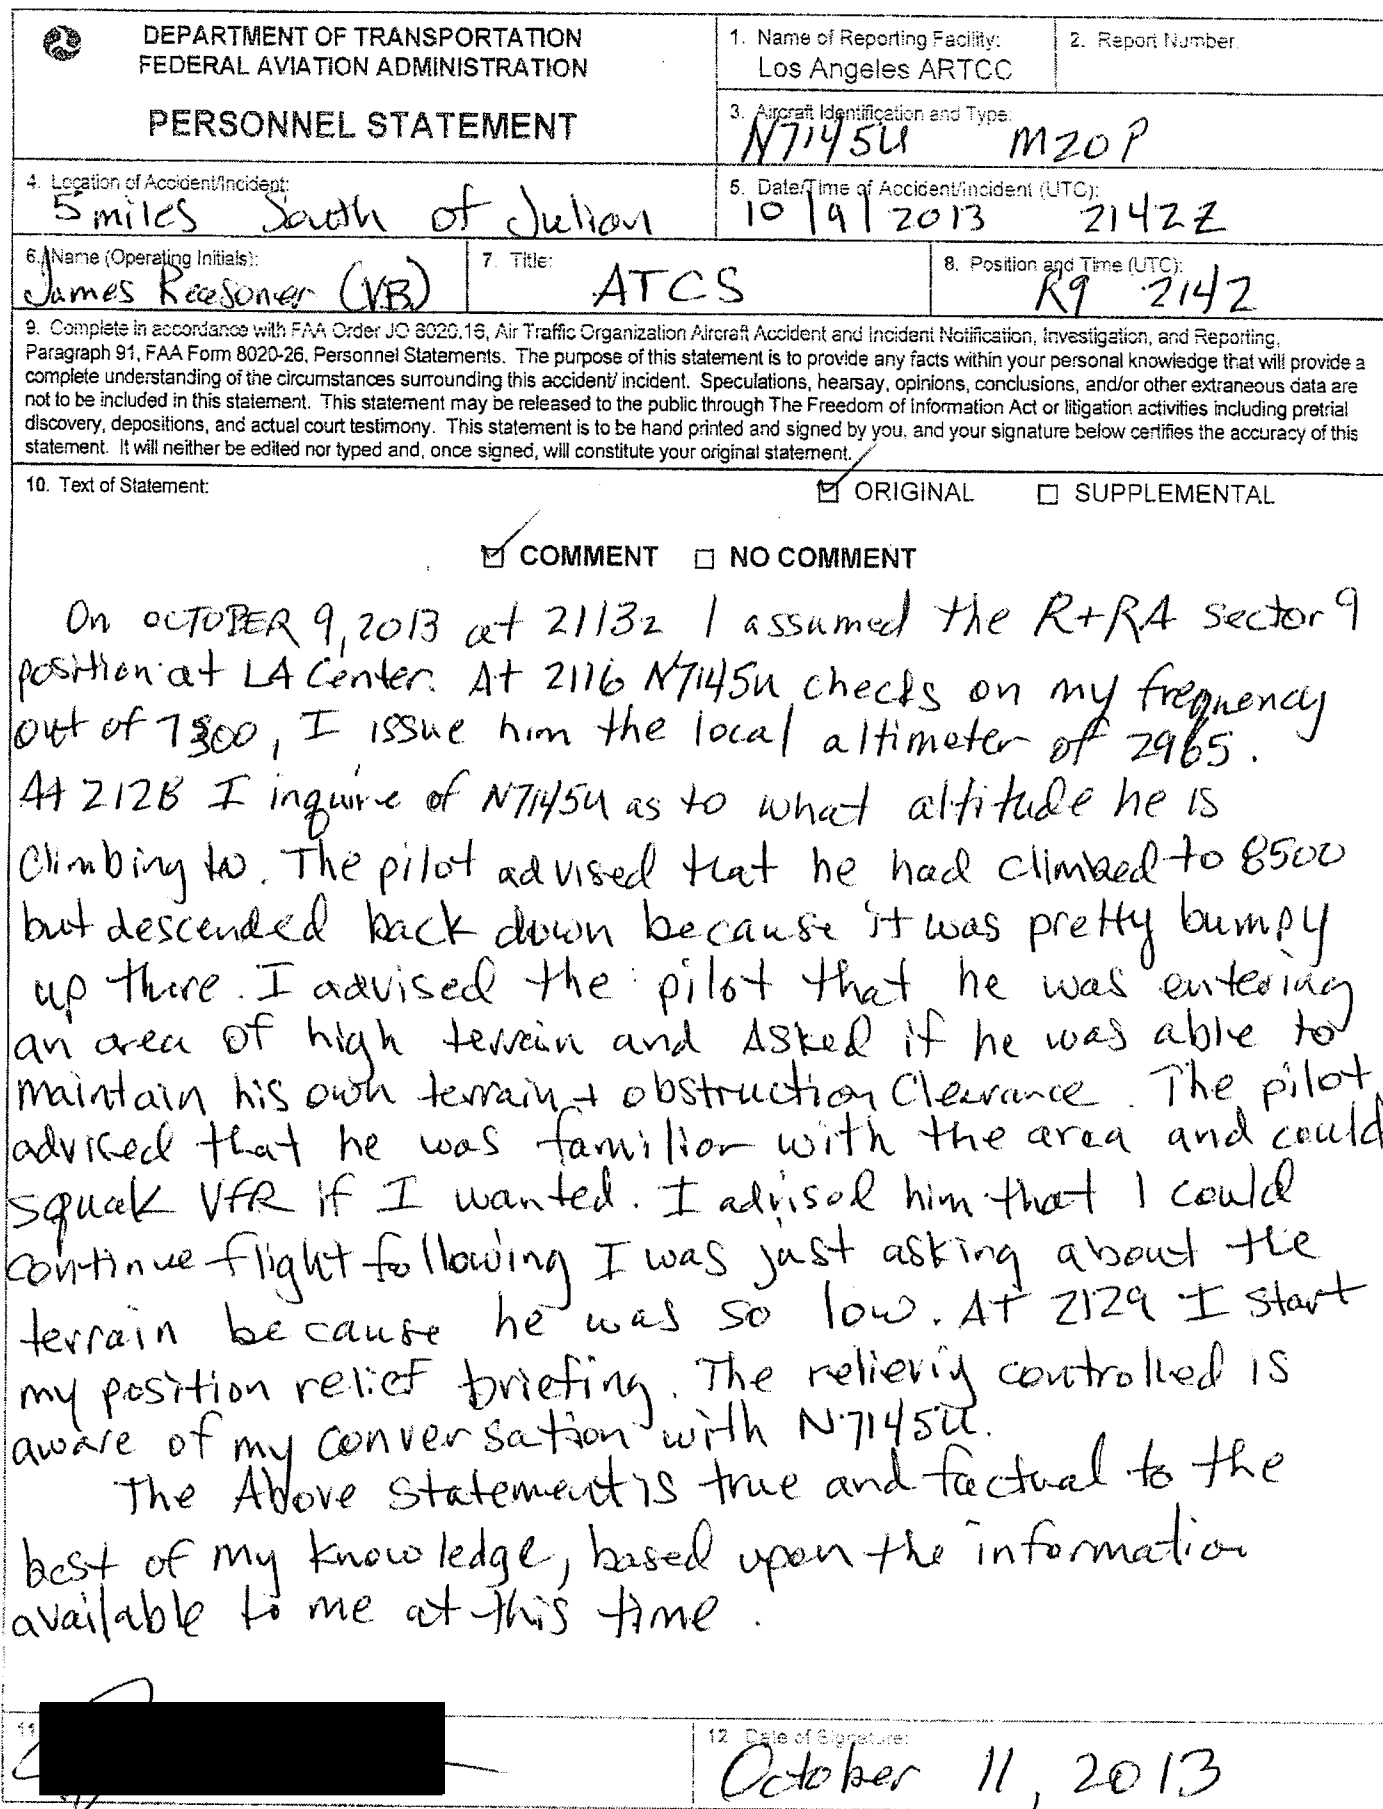 DEPARTMENT OF TRANSPORTATION
FEDERAL AVIATION ADMINISTRATION
PERSONNEL STATEMENT
1. Name of Reporting Facility:
Los Angeles ARTCC
2. Report Number.
3. Aircraft Identification and Type:
N7145U M20P
4. Location of Accident/Incident:
5 miles South of Julian
5. Date/Time of Accident/Incident (UTC):
10/9/2013 2142Z
6. Name (Operating Initials):
James Reasoner (VB)
7. Title:
ATCS
8. Position and Time (UTC):
R9 2142
9. Complete in accordance with FAA Order JO 8020.16, Air Traffic Organization Aircraft Accident and Incident Notification, Investigation, and Reporting,
Paragraph 91, FAA Form 8020-26, Personnel Statements. The purpose of this statement is to provide any facts within your personal knowledge that will provide a
complete understanding of the circumstances surrounding this accident/ incident. Speculations, hearsay, opinions, conclusions, and/or other extraneous data are
not to be included in this statement. This statement may be released to the public through The Freedom of Information Act or litigation activities including pretrial
discovery, depositions, and actual court testimony. This statement is to be hand printed and signed by you, and your signature below certifies the accuracy of this
statement. It will neither be edited nor typed and, once signed, will constitute your original statement.
10. Text of Statement:
ORIGINAL SUPPLEMENTAL
COMMENT NO COMMENT
On OCTOBER 9, 2013 at 2113z I assumed the R+RA Sector 9
position at LA Center. At 2116 N7145U checks on my frequency
out of 7300, I issue him the local altimeter of 2965.
At 2128 I inquire of N7145U as to what altitude he is
Climbing to. The pilot advised that he had climbed to 8500
but descended back down because it was pretty bumpy
up there. I advised the pilot that he was entering
an area of high terrain and Asked if he was able to
maintain his own terrain + obstruction Clearance. The pilot
advised that he was familiar with the area and could
squak VFR if I wanted. I advised him that I could
continue flight following I was just asking about the
terrain because he was so low. At 2129 I start
my position relief briefing. The relievig controlled is
aware of my conversation with N7145U.
The Above Statement is true and factual to the
best of my knowledge, based upon the information
available to me at this time.
11
12 Date of Signature:
October 11, 2013